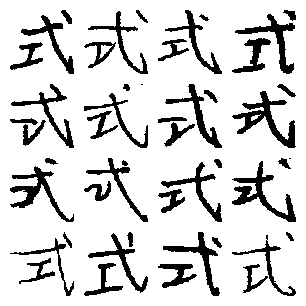 式式式式
式式式式
式式式式
式式式式